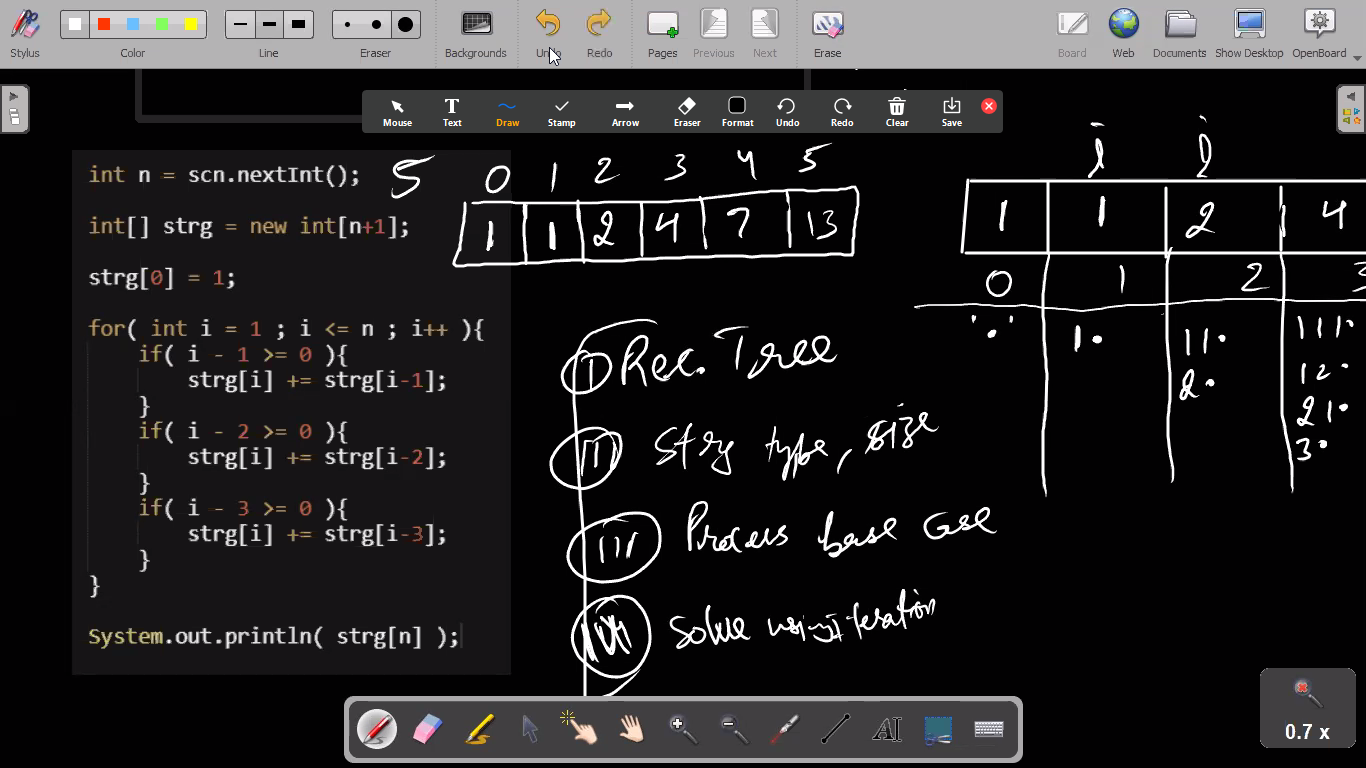 Stylus Color Line Eraser Backgrounds Undo Redo Pages Previous Next Erase Board Web Documents Show Desktop OpenBoard
Mouse Text Draw Stamp Arrow Eraser Format Undo Redo Clear Save
int n = scn.nextInt(); 5
int[] strg = new int[n+1];
strg[0] = 1;
for( int i = 1 ; i <= n ; i++ ){
if( i - 1 >= 0 ){
strg[i] += strg[i-1];
}
if( i - 2 >= 0 ){
strg[i] += strg[i-2];
}
if( i - 3 >= 0 ){
strg[i] += strg[i-3];
}
}
System.out.println( strg[n] );
0 1 2 3 4 5
1 1 2 4 7 13
I Rec. Tree
II Strg type, size
III Process base case
IV Solve using iteration
i i
1 1 2 4
0 1 2 3
"." 1. 11. 111.
2. 12.
21.
3.
AI
0.7 x